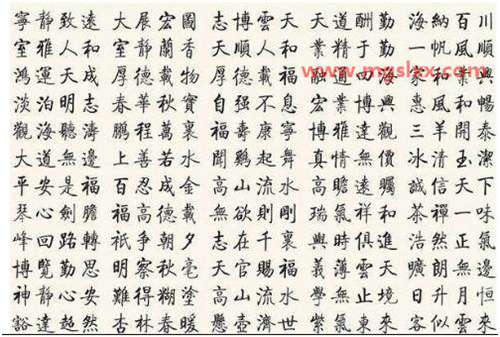 寧靜致遠 大展宏圖 志博雲天 天道酬勤 海納百川
室雅人和 室靜蘭香 天順人和 業精于勤 一帆風順
鴻運天成 厚德載物 厚德載福 融通四海 家和業興
淡泊明志 春華秋實 自强不息 宏業博興 惠風和暢
觀海聽濤 鵬程萬裏 福壽康寧 博雅達觀 三羊開泰
大道無邊 上善若水 聞鷄起舞 真情無價 冰清玉潔
平安是福 百忍成金 高山流水 高瞻遠矚 誠信天下
琴心劍膽 福高德載 無欲則剛 瑞氣祥和 茶禪一味
峰回路轉 祇争朝夕 志在千裏 與時俱進 浩然正氣
博覽勤思 明察秋毫 天官賜福 義薄雲天 曠朗無邊
神静心安 難得糊塗 高山流水 學無止境 日升月恒
豁達超然 杏林春暖 懸壺濟世 紫氣東來 客似雲來